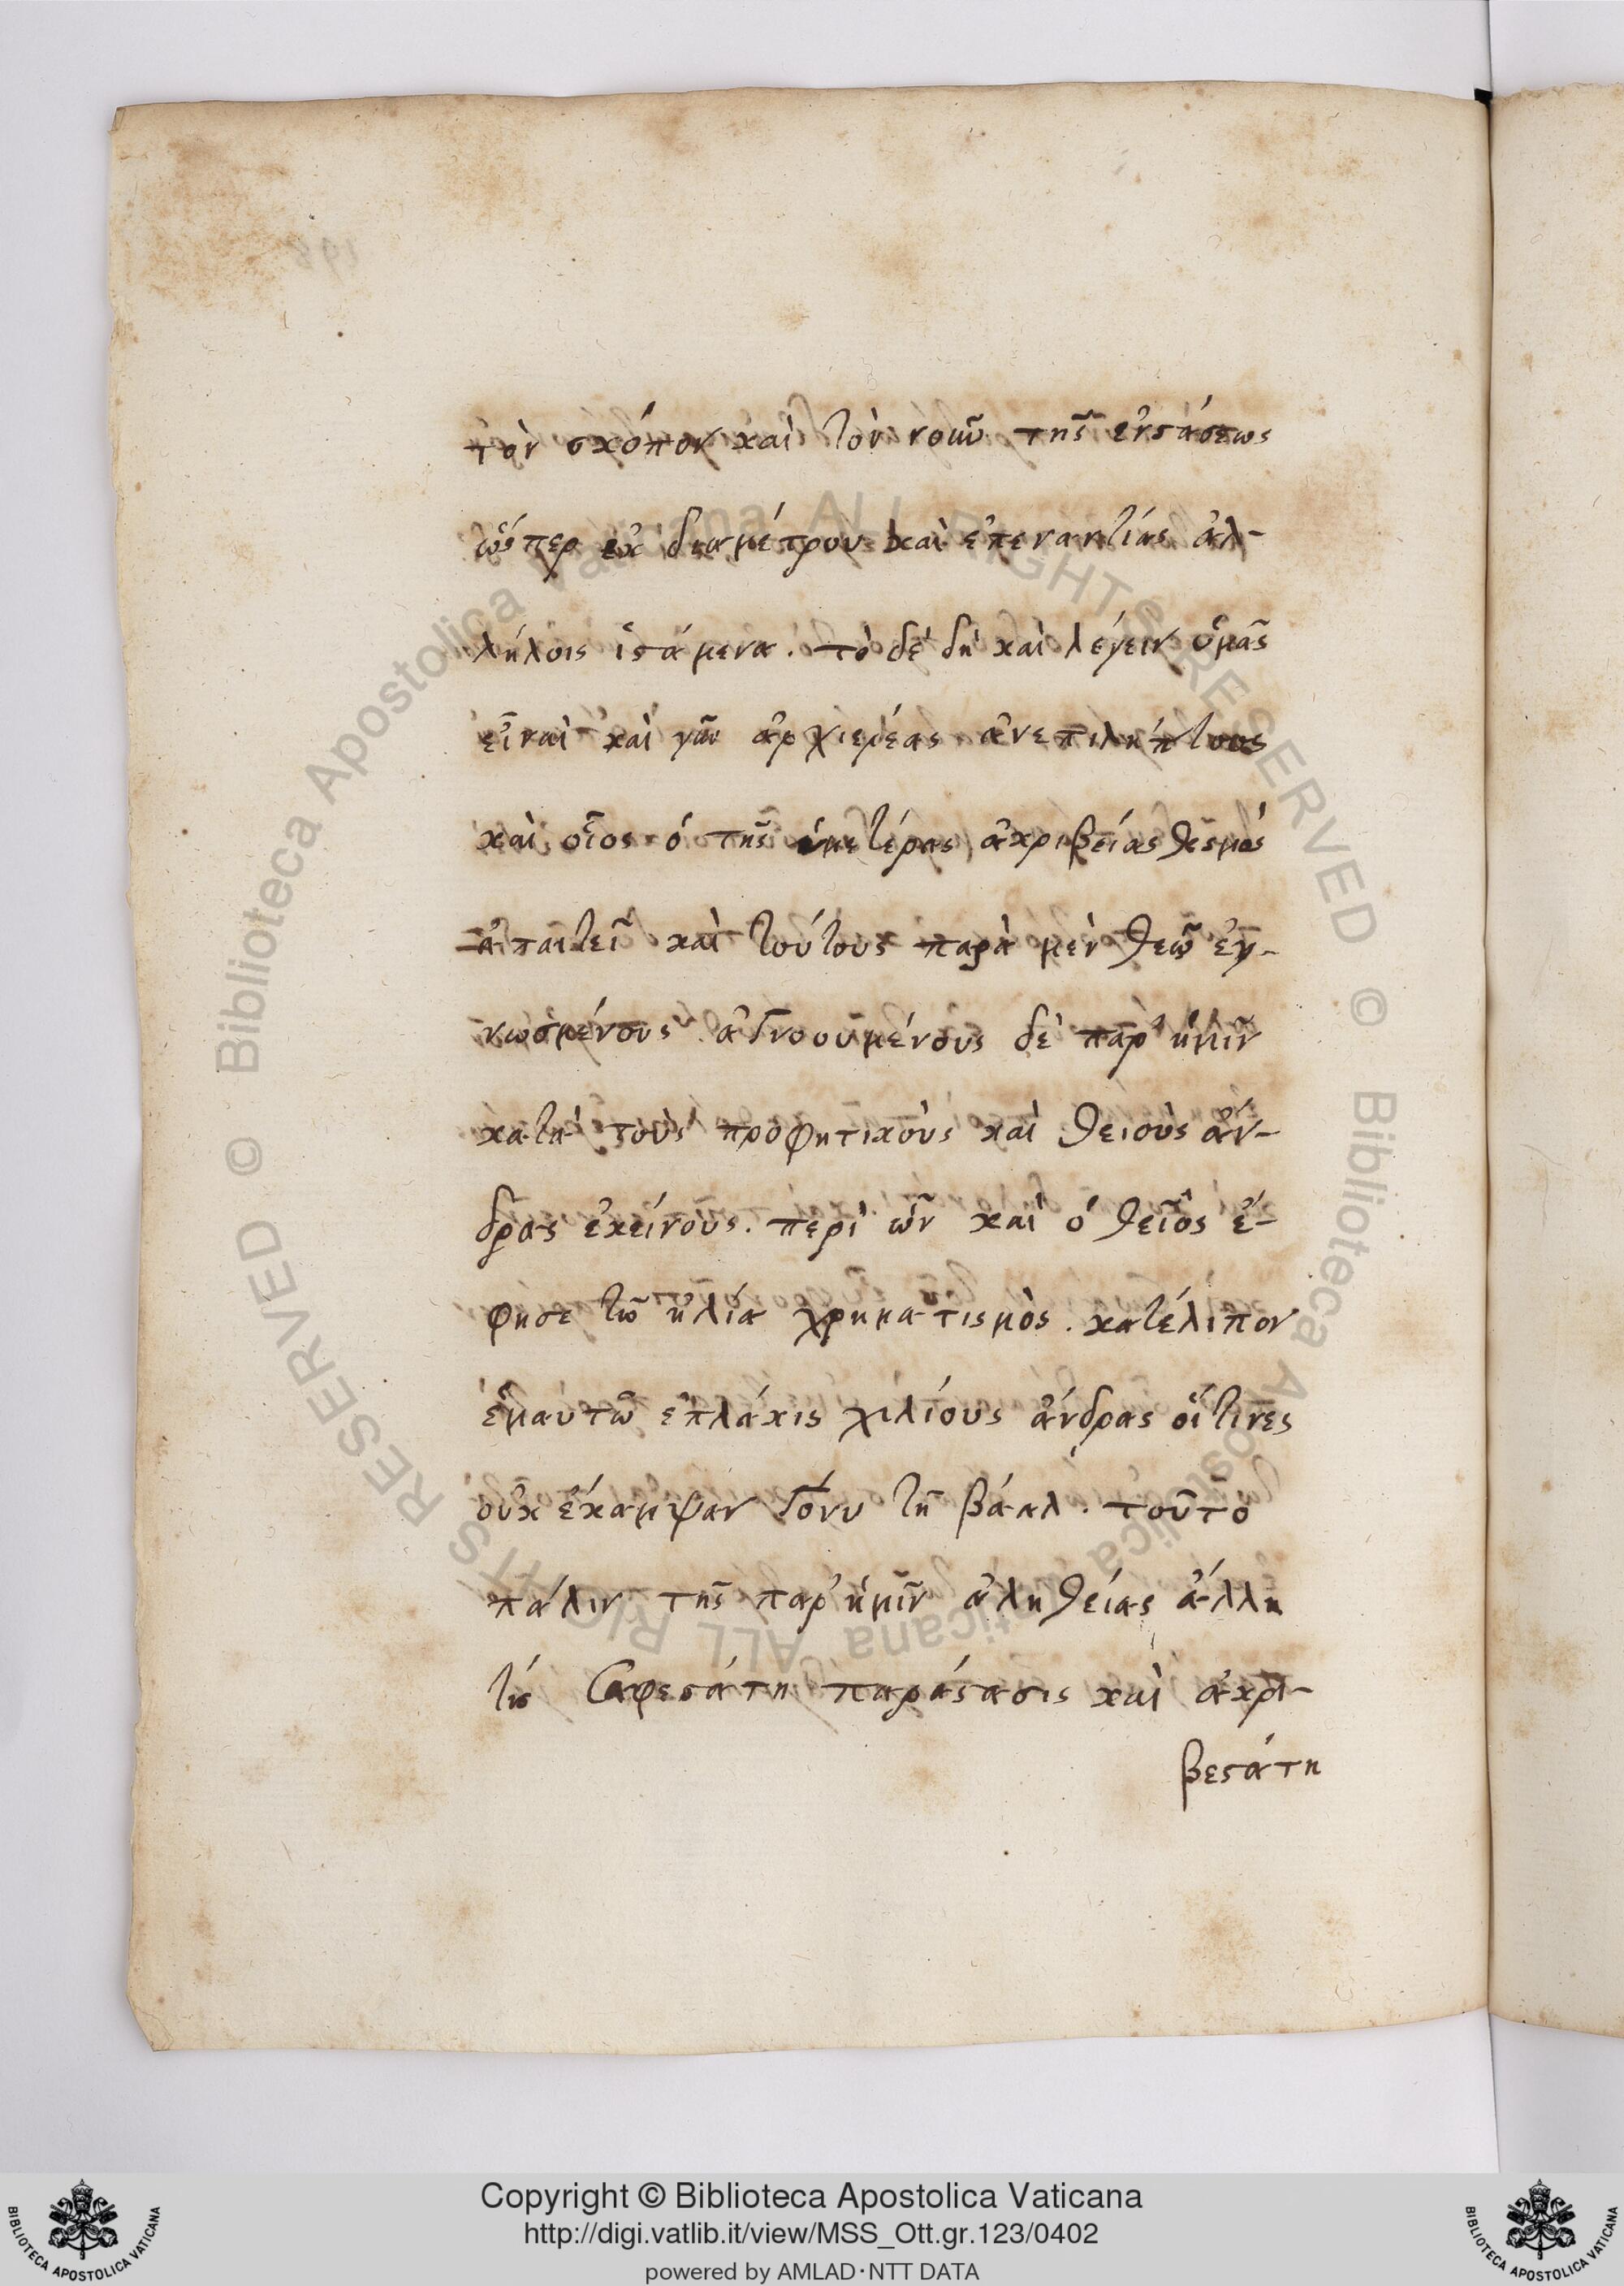 τὸν σκόπον καὶ τὸν νοῦν τῆς ἐνστάσεως
ὥσπερ ἐκ διαμέτρου καὶ ἐπεναντίας ἀλ-
λήλοις ἱστάμενα. τὸ δὲ δὴ καὶ λέγειν ὑμᾶς
εἶναι καὶ νῦν ἀρχιερέας ἀνεπιλήπτους
καὶ οἷος ὁ τῆς ἡμετέρας ἀκριβείας θεσμὸς
ἀπαιτεῖ καὶ τούτους παρὰ μὲν θεῷ ἐγ-
νωσμένους ἀγνοουμένους δὲ παρ' ἡμῖν
κατὰ τοὺς προφητικοὺς καὶ θείους ἄν-
δρας ἐκείνους. περὶ ὧν καὶ ὁ θεῖος ἔ-
φησε τῷ ἠλία χρηματισμὸς. κατέλιπον
ἐμαυτῷ ἑπτάκις χιλίους ἄνδρας οἵτινες
οὐκ ἔκαμψαν γόνυ τῇ βάαλ. τοῦτο
πάλιν τῆς παρ' ἡμῖν ἀληθείας ἄλλη
τίς σαφεστάτη παράστασις καὶ ἀκρι-
βεστάτη
Copyright © Biblioteca Apostolica Vaticana
http://digi.vatlib.it/view/MSS_Ott.gr.123/0402
powered by AMLAD·NTT DATA
BIBLIOTECA APOSTOLICA VATICANA
BIBLIOTECA APOSTOLICA VATICANA
© Biblioteca Apostolica Vaticana ALL RIGHTS RESERVED
© Biblioteca Apostolica Vaticana ALL RIGHTS RESERVED